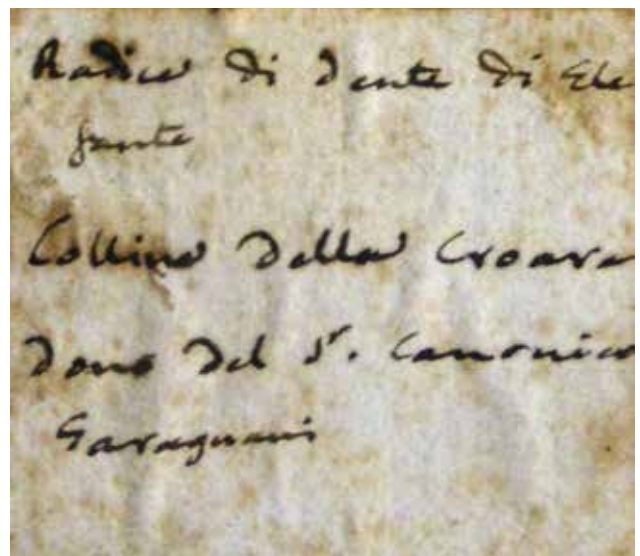 Radice di dente di Ele
fante
Collina della Croara
dono del Sr. Canonico
Garagnani